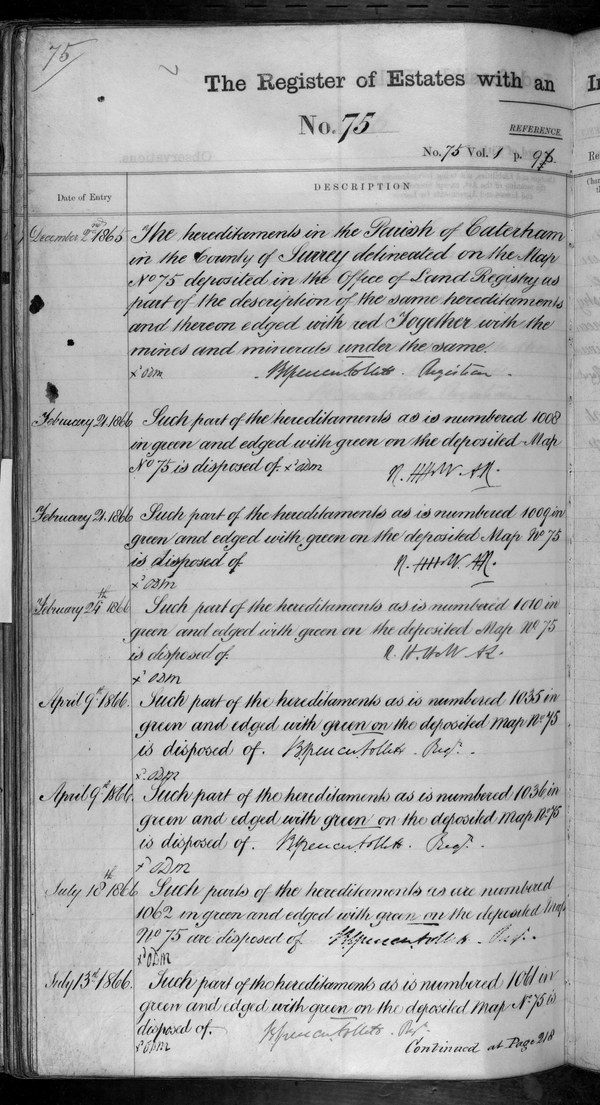 75
The Register of Estates with an
No. 75
REFERENCE
No. 75 Vol. 1 p. 96.
Date of Entry
DESCRIPTION
December 2nd 1865
The hereditaments in the Parish of Caterham
in the County of Surrey delineated on the Map
No 75 deposited in the Office of Land Registry as
part of the description of the same hereditaments
and thereon edged with red Together with the
mines and minerals under the same.
x' ODM
Registrar
February 21. 1866
Such part of the hereditaments as is numbered 1008
in green and edged with green on the deposited Map
No 75 is disposed of. x' ODM
February 21. 1866
Such part of the hereditaments as is numbered 1009 in
green and edged with green on the deposited Map No 75
is disposed of
x' ODM
February 24th 1866
Such part of the hereditaments as is numbered 1010 in
green and edged with green on the deposited Map No 75
is disposed of.
x' ODM
April 9th 1866.
Such part of the hereditaments as is numbered 1035 in
green and edged with green on the deposited Map No 75
is disposed of. Regr.
x' ODM
April 9th 1866.
Such part of the hereditaments as is numbered 1036 in
green and edged with green on the deposited Map No 75
is disposed of. Regr.
x' ODM
July 18th 1866
Such parts of the hereditaments as are numbered
1062 in green and edged with green on the deposited Map
No 75 are disposed of Regr.
x' ODM
July 13th 1866.
Such part of the hereditaments as is numbered 1061 in
green and edged with green on the deposited Map No 75 is
disposed of. Regr.
x' ODM
Continued at Page 218